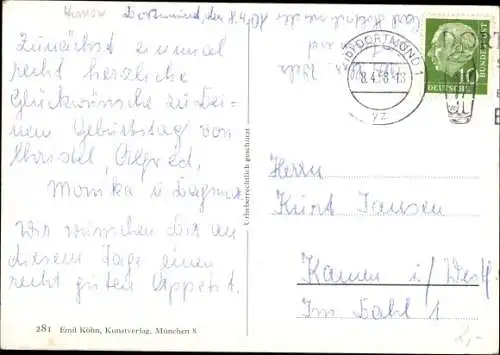 Dortmund, den 8.4.
Zunächst einmal
recht herzliche
Glückwünsche zu Dei-
nem Geburtstag von
Alfred,
Monika u. Dagmar
Wir wünschen Dir an
diesem Tage einen
recht guten Appetit.
281 Emil Köhn, Kunstverlag, München 8
Urheberrechtlich geschützt
DORTMUND 1
8.4.58.-18
yz
DEUTSCHE BUNDESPOST
10
Herrn
Kurt Jansen
Kamen i/Westf.
Im Dahl 1